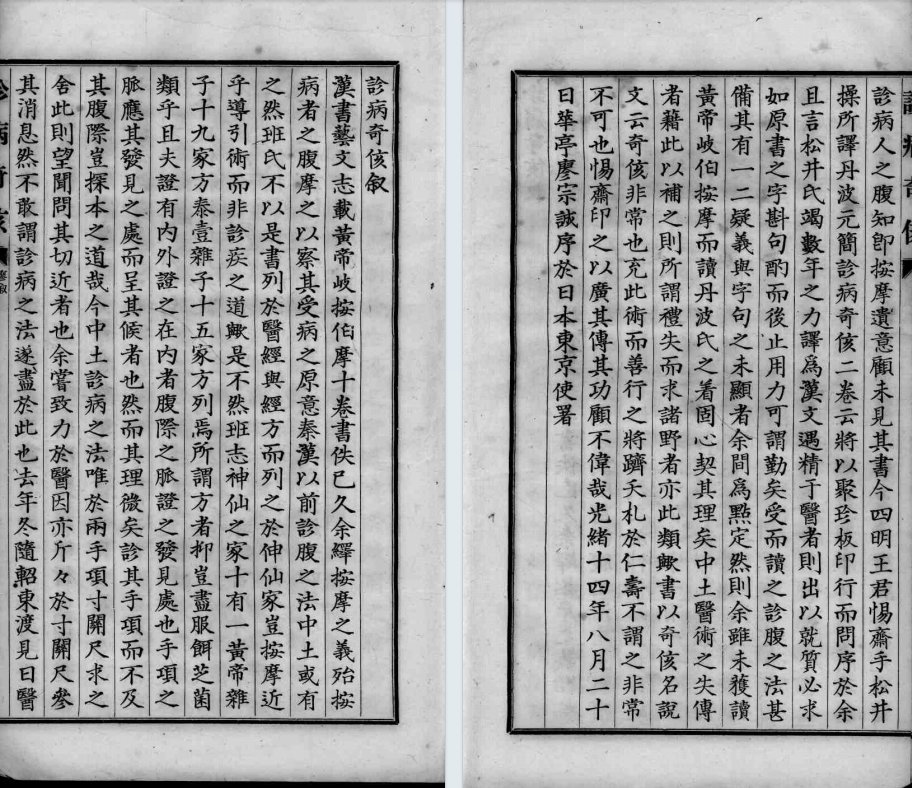 診病奇侅叙
漢書藝文志載黃帝岐按伯摩十卷書佚已久余繹按摩之義殆按
病者之腹摩之以察其受病之原意秦漢以前診腹之法中土或有
之然班氏不以是書列於醫經與經方而列之於伸仙家豈按摩近
乎導引術而非診疾之道歟是不然班志神仙之家十有一黃帝雜
子十九家方泰壹雜子十五家方列焉所謂方者抑豈盡服餌芝菌
類乎且夫證有內外證之在內者腹際之脈證之發見處也手項之
脈應其發見之處而呈其候者也然而其理微矣診其手項而不及
其腹際豈探本之道哉今中土診病之法唯於兩手項寸關尺求之
舍此則望聞問其切近者也余嘗致力於醫因亦斤々於寸關尺參
其消息然不敢謂診病之法遂盡於此也去年冬隨軺東渡見日醫
診病奇侅
診病奇侅
診病人之腹知卽按摩遺意顧未見其書今四明王君惕齋手松井
操所譯丹波元簡診病奇侅二卷云將以聚珍板印行而問序於余
且言松井氏竭數年之力譯爲漢文遇精于醫者則出以就質必求
如原書之字斟句酌而後止用力可謂勤矣受而讀之診腹之法甚
備其有一二疑義與字句之未顯者余間爲點定然則余雖未獲讀
黃帝岐伯按摩而讀丹波氏之着固心契其理矣中土醫術之失傳
者藉此以補之則所謂禮失而求諸野者亦此類歟書以奇侅名說
文云奇侅非常也充此術而善行之將躋夭札於仁壽不謂之非常
不可也惕齋印之以廣其傳其功顧不偉哉光緒十四年八月二十
日華亭廖宗誠序於日本東京使署